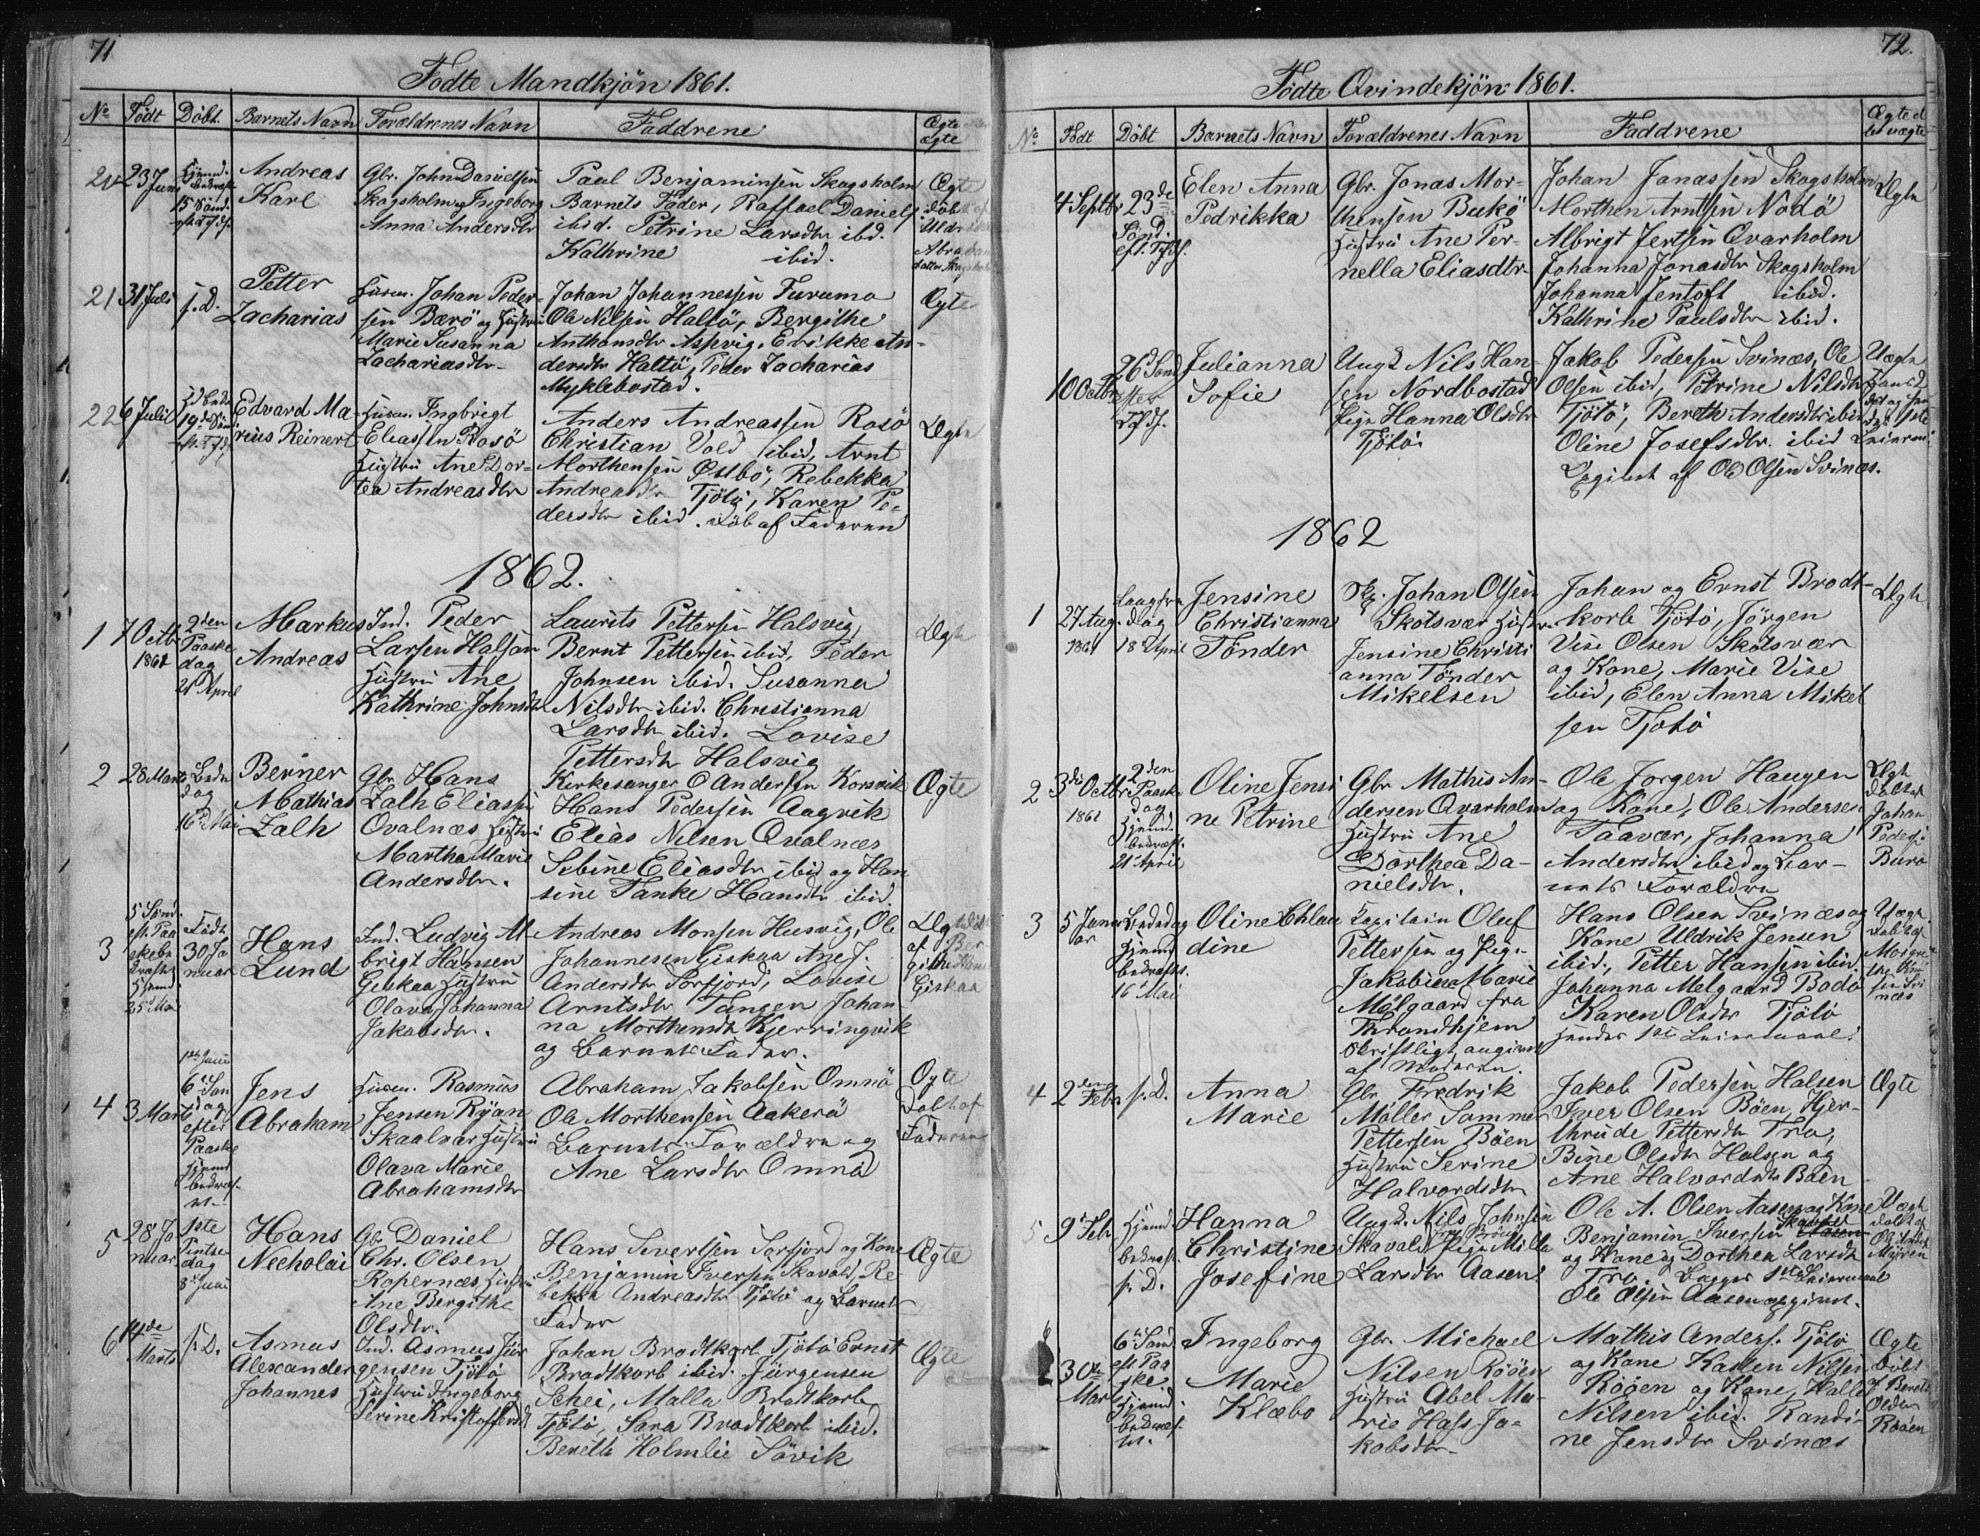 71
Födte Mandkjön 1861.
No Födt Döbt. Barnets Navn Forældrenes Navn Faddrene Ægte
23 Juni
Andreas
Karl
Gbr. John Danielsen
Skogsholm Ingeborg
Anna Andersdtr
Paul Benjaminsen Skogsholm
Barnets Fader, Raffael Daniels
ibid. Petrine Larsdtr ibd.
Kathrine ibid.
Ægte
21 31 Juli s. D.
Petter
Zacharias
Huusm. Johan Peder-
sen Bærö og Hustru
Marie Susanna
Zachariasdtr-
Johan Johannessen Furumo
Ole Nilsen Haltö, Bergithe
Anthonsdtr Aspvig, Erikke An-
dersdtr Haltö, Peder Zacharias
Myklebostad.
Ægte
22 6 Juli
Edvard Ma-
rius Reinert
Huusm. Ingbrigt
Eliassen Rosö
Hustru Ane Dor-
tea Andreasdtr
Anders Andreassen Rosö
Christian Vold ibid, Arnt
Morthensen Østbö, Rebekka
Andreasdtr Tjötö, Karen Pe-
dersdtr ibid. Döb af Faderen
Ægte
1862.
1 7 Octbr
1861
2den
Paaske
dag
21 April
Markus
Andreas
Ind. Peder
Larsen Halsan
Hustru Ane
Kathrine Johnsdtr
Laurits Pettersen Halsvig,
Bernt Pettersen ibid, Peder
Johnsen ibid. Susanna
Nilsdtr ibid. Christianna
Larsdtr ibid. Lovise
Pettersdtr Halsvig
Ægte
2 28 Marts Bede
dag
16 Mai
Berner
Mathias
Zalh
Gbr. Hans
Zalh Eliassen
Qvalnæs Hustru
Martha Marie
Andersdtr.
Kirkesanger O Andersen Korsvik
Hans Pedersen Aagvik
Elias Nilsen Qvalnæs
Sebine Eliasdtr ibid og Han
sine Tanke Hansdtr ibid.
Ægte
3
5 Sönd.
Födt
30 Ja
nuar
Hans
Lund
Ind. Ludvig Al
brigt Hansen
Geskaa Hustru
Olava Johanna
Jakobsdtr.
Andreas Monsen Husvig, Ole
Johannesen Giskaa Ane J.
Andersdtr Sörfjord, Lovise
Arntsdtr Tangen Johan
na Morthensdtr Kjerringvik
og Barnets Fader.
Giskaa
4 3 Marts
6 Sön
dag
efter
Paaske
Jens
Abraham
Huusm. Rasmus
Jensen Ryan
Skaalvær Hustru
Olava Marie
Abrahamsdtr
Abraham Jakobsen Omnö
Ole Morthensen Aakerö
Barnets Forældre og
Ane Larsdtr Omnö
Ægte
Döbt af
Faderen
5 28 Ja
nuar
1ste
Pintse
dag
8 Juni
Hans
Necholai
Gbr Daniel
Chr. Olsen
Ropernæs Hustru
Ane Bergithe
Olsdtr.
Hans Sivertsen Sörfjord og Kone
Benjamin Iversen Skavold, Re-
bekka Andreasdtr Tjötö og Barnets
Fader
Ægte
6 14de
Marts
s. D.
Asmus
Alexander
Johannes
Ind. Asmus Jür
gensen Tjötö
Hustru Ingeborg
Serine Kristoffersdt
Johan Brodtkorb Tjötö Ernst
Brodtkorb ibid. Jürgensen
Schei, Malla Brodtkorb
Tjötö, Sara Brodtkorb ibid.
Bereth Holmlie Sövik
Ægte
72.
Födte Qvindekjön 1861.
No Födt Döbt Barnets Navn Forældrenes Navn Faddrene
4 Septbr 23de
Sönd.
eft. Tfdf.
Elen Anna
Pedrikka
Gbr. Jonas Mor-
thensen Bukö
Hustru Ane Per-
nella Eliasdtr
Johan Jonassen Skogsholm
Morthen Arntsen Nodö
Albrigt Jertsen Qvarholm
Johanna Jonasdtr Skogsholm
Johanna Jentoft ibid.
Kathrine Paulsdtr ibid.
Ægte
10 Octbr
26 Sönd
efter
Julianna
Sofie
Ungk Nils Han-
sen Nordbostad
Pige Hanna Olsdtr
Tjötö.
Jakob Pedersen Svinæs, Ole
Olsen ibid, Petrine Nilsdtr
Tjötö, Bereth Andersdtr ibid
Oline Josefsdtr. ibid
Opgivet af Ole Olsen Svinæs.
Uægte
1862
1 27 Aug.
1861
Langfre
dag
18 April
Jensine
Christianna
Tönder
Johan Olsen
Skotsvær Hustru
Jensine Christi
anna Tönder
Mikelsen
Johan og Ernst Brodt-
korb Tjötö, Jörgen
Vise Olsen Skotsvær
og Kone, Marie Vise
ibid, Elen Anna Mikel
sen Tjötö
Ægte
2 3die Octbr
1861
2den
Paaske
dag
Hjemd.
bedræf.
21 April
Oline Jensi
ne Petrine
Gbr Mathis An-
dersen Qvarholm
Hustru Ane
Dorthea Da-
nielsdtr.
Ole Jørgen Haugen
og Kone, Ole Andersen
Taavær, Johanna
Andersdtr ibid og Bar-
nets Forældre
Ægte
döbt af
Johan
Peders
3 5 Janu
ar
Bededag
Hjemd
bedræft.
16 Mai
Oline Chlau
dine
Oluf
Pettersen og Pige
Jakobina Marie
Mølgaard fra
Throndhjem
Skriftligt angivet
af Moderen.
Hans Olsen Svinæs og
Kone Uldrik Jensen
ibid., Petter Hansen ibid.
Johanna Melgaard Bodö
Karen Olsdtr Tjötö
Hendes 1ste Leiermaal.
Uægte
4 2den
Febr. s. D.
Anna
Marie
Gbr Fredrik
Møller Sommer
Pettersen Böen
Hustru Serine
Halvordsdtr
Jakob Pedersen Halsen
Iver Olsen Böen, Hjer-
thrude Pettersdtr Tro,
Bine Olsdtr Halsen og
Ane Halvordsdtr Böen
Ægte
5 9 Feb.
Hjemd
bedræf.
s. D.
Hanna
Christine
Josefine
Ungk. Nils Johnsen
Skavold Pige Milla
Larsdtr Aasen.
Ole A. Olsen Aasen og Kone
Benjamin Iversen Skavold
og Kone og Dorthea Larsdtr
Tro. Begges 1ste Leiermaal
Ole Olsen Aasen opgivet.
Uægte
30te
Mar
6 Sönd
eft Paa
ske.
Hjemd
bedræf.
Ingeborg
Marie
Klæbo
Gbr. Michael
Nilsen Röøen
Hustru Abel Ma-
rie Hass Ja-
kobsdtr-
Mathis Anders. Tjötö
og Kone Karen Nilsen
Röøen og Kone, Halle
Nilsen ibid. Randi-
ne Jensdtr Svinæs
Ægte
Döbt
Röøen